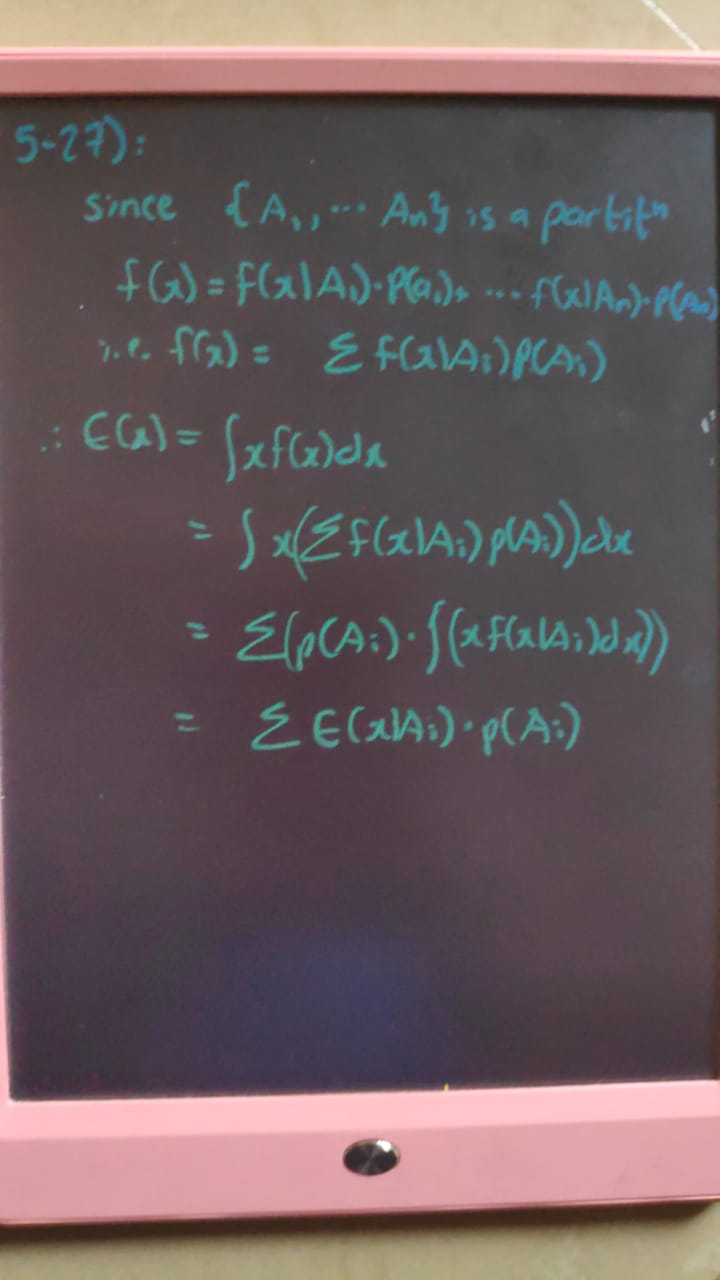 5-27):
since {A₁,, ... Aₙ} is a partitⁿ
f(x) = f(x|A₁)·P(a₁)+ ... f(x|Aₙ)·P(Aₙ)
i.e. f(x) = Σ f(x|Aᵢ)P(Aᵢ)
∴ E(x) = ∫xf(x)dx
= ∫ x(Σf(x|Aᵢ)p(Aᵢ))dx
= Σ(p(Aᵢ)·∫(xf(x|Aᵢ)dx))
= Σ E(x|Aᵢ)·p(Aᵢ)